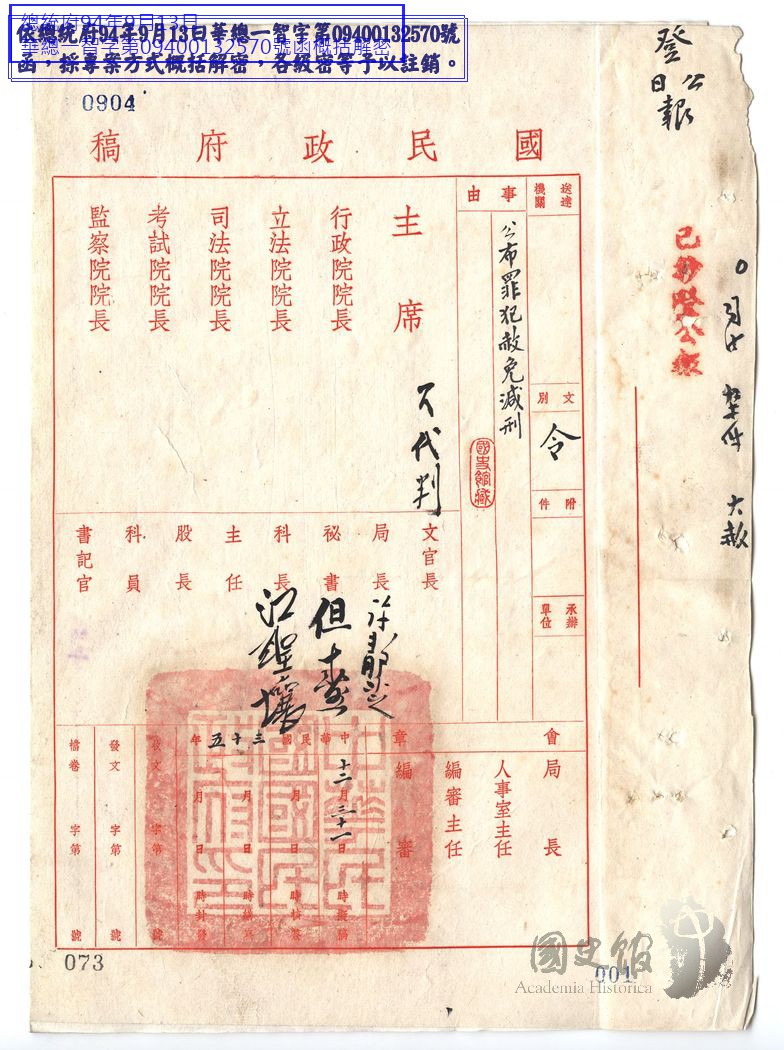 總統府94年9月13日
華總一智字第09400132570號函概括解密
依總統府94年9月13日華總一智字第09400132570號
函,採專案方式概括解密,各級密等予以註銷。
0904
登公報
已抄登公報
大赦
國民政府稿
送達機關
文別
令
附件
承辦單位
事由
公布罪犯赦免減刑
國史館藏
主席
行政院院長
立法院院長
司法院院長
考試院院長
監察院院長
文官長
局長
祕書
科長
主任
股長
科員
書記官
會章
局長
人事室主任
編審主任
編審
中華民國三十五年
十二月三十一日
月 日
月 日
月 日
收文 字第 號
發文 字第 號
檔卷 字第 號
073
001
國史館
Academia Historica